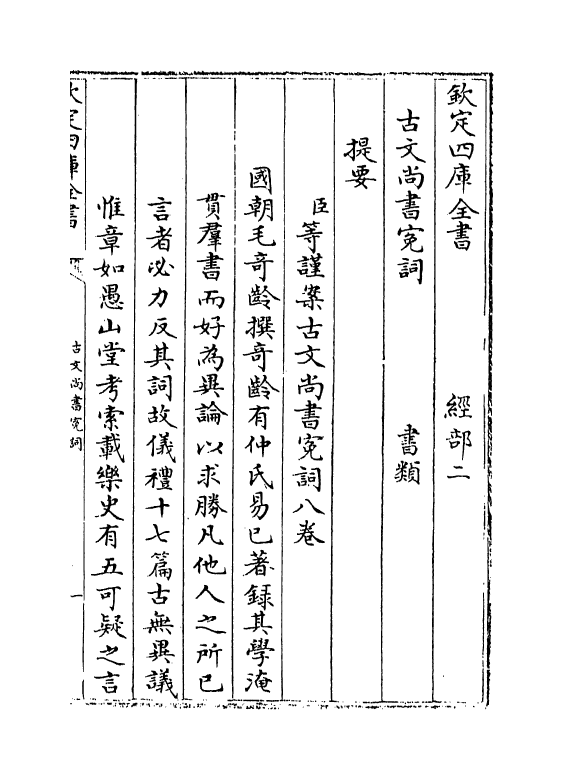 欽定四庫全書 經部二
古文尚書寃詞 書類
提要
臣等謹案古文尚書寃詞八卷
國朝毛奇齡撰奇齡有仲氏易已著録其學淹
貫羣書而好為異論以求勝凡他人之所已
言者必力反其詞故儀禮十七篇古無異議
惟章如愚山堂考索載樂史有五可疑之言
欽定四庫全書
古文尚書寃詞
一